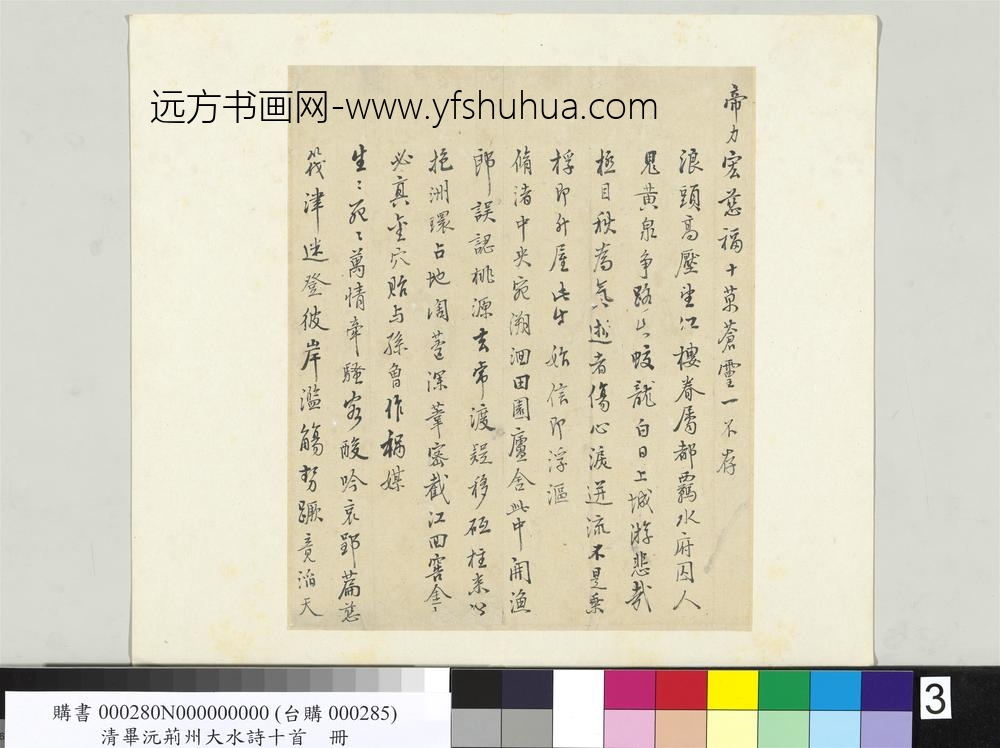 远方书画网-www.yfshuhua.com
帝力宏慈福十萬蒼靈一不存
浪頭高壓望江樓眷屬都羈水府囚人
鬼黃泉爭路出蛟龍白日上城游悲哉
極目秋為氣逝者傷心淚迸流不是乘
桴即升屋此生始信即浮漚
脩渚中央宛溯洄田園廬舍此中開漁
郎誤認桃源去常渡疑移砥柱來
洲環占地闊萑深葦密截江回窖金
必真金穴貽与孫曾作禍媒
生〻死〻萬情牽騷客酸吟哀郢篇慈
筏津迷登彼岸濫觴勢蹶竟滔天
3
購書 000280N000000000 (台購 000285)
清畢沅荊州大水詩十首 冊